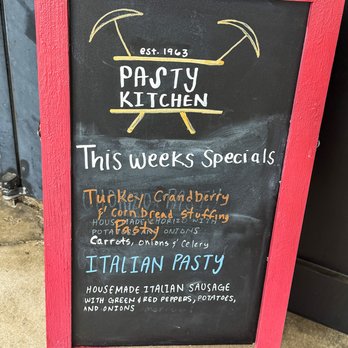 est. 1963
PASTY
KITCHEN
This Weeks Specials
Turkey Crandberry
& Cornbread stuffing
Pasty
HOUSEMADE CHORIZO WITH
POTATOES AND ONIONS
Carrots, onions & Celery
ITALIAN PASTY
HOUSEMADE ITALIAN SAUSAGE
WITH GREEN & RED PEPPERS, POTATOES,
AND ONIONS